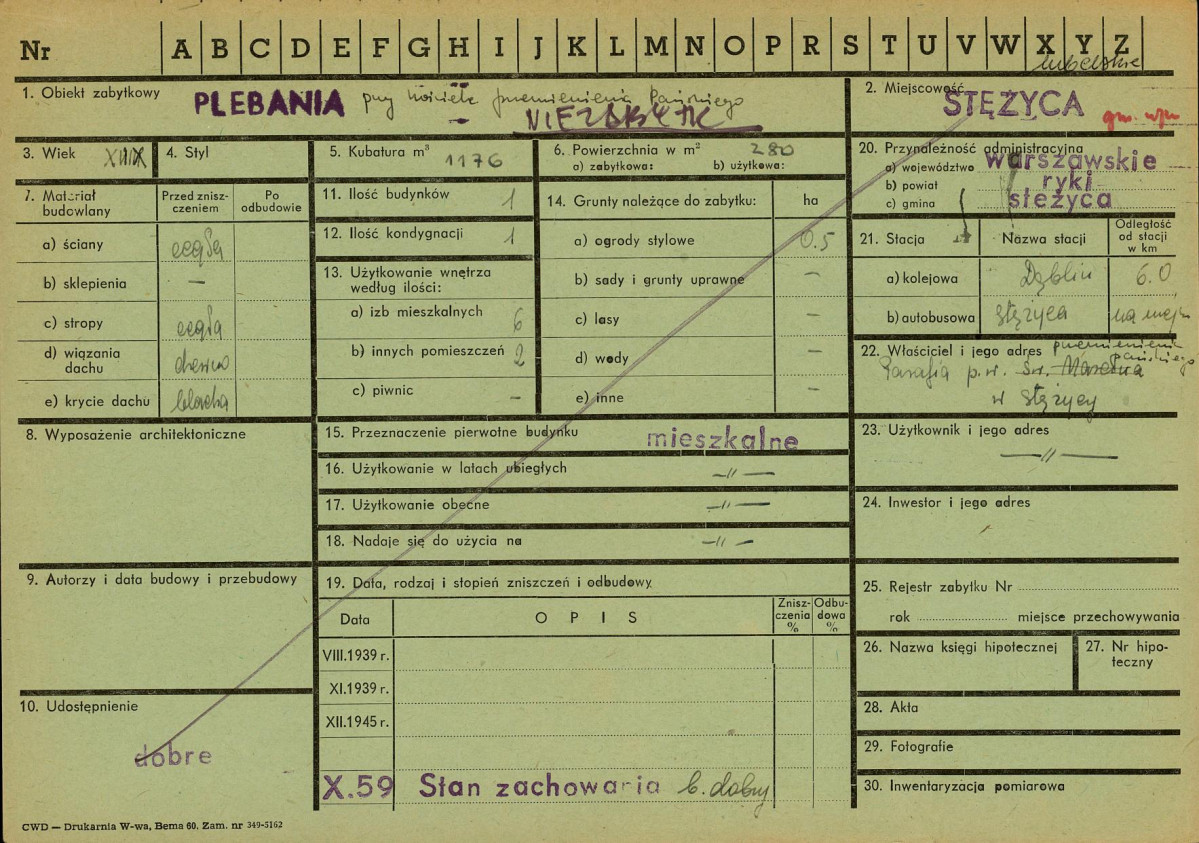 Nr A B C D E F G H I J K L M N O P R S T U V W X Y Z
lubelskie
1. Obiekt zabytkowy PLEBANIA przy kościele przemienienia Pańskiego
NIEZABYTK
2. Miejscowość STĘŻYCA
3. Wiek
4. Styl
5. Kubatura m³ 1176
6. Powierzchnia w m² 280
a) zabytkowa: b) użytkowa:
7. Materiał budowlany
Przed zniszczeniem
Po odbudowie
a) ściany cegła
b) sklepienia —
c) stropy cegła
d) wiązania dachu drewno
e) krycie dachu blacha
8. Wyposażenie architektoniczne
9. Autorzy i data budowy i przebudowy
10. Udostępnienie
dobre
11. Ilość budynków 1
12. Ilość kondygnacji 1
13. Użytkowanie wnętrza
według ilości:
a) izb mieszkalnych 6
b) innych pomieszczeń 2
c) piwnic —
14. Grunty należące do zabytku: ha
a) ogrody stylowe 0.5
b) sady i grunty uprawne —
c) lasy —
d) wody —
e) inne —
15. Przeznaczenie pierwotne budynku mieszkalne
16. Użytkowanie w latach ubiegłych —„—
17. Użytkowanie obecne —„—
18. Nadaje się do użycia na —„—
19. Data, rodzaj i stopień zniszczeń i odbudowy
Data OPIS Zniszczenia % Odbudowa %
VIII.1939 r.
XI.1939 r.
XII.1945 r.
X.59 Stan zachowania b. dobry
20. Przynależność administracyjna
a) województwo warszawskie
b) powiat ryki
c) gmina stężyca
21. Stacja Nazwa stacji Odległość od stacji w km
a) kolejowa Dęblin 6.0
b) autobusowa Stężyca na miejscu
22. Właściciel i jego adres przemienienia
pańskiego
Parafia p.w. Św. Marcina
w Stężycy
23. Użytkownik i jego adres
—„—
24. Inwestor i jego adres
25. Rejestr zabytku Nr
rok miejsce przechowywania
26. Nazwa księgi hipotecznej
27. Nr hipoteczny
28. Akta
29. Fotografie
30. Inwentaryzacja pomiarowa
CWD — Drukarnia W-wa, Bema 60. Zam. nr 349-5162